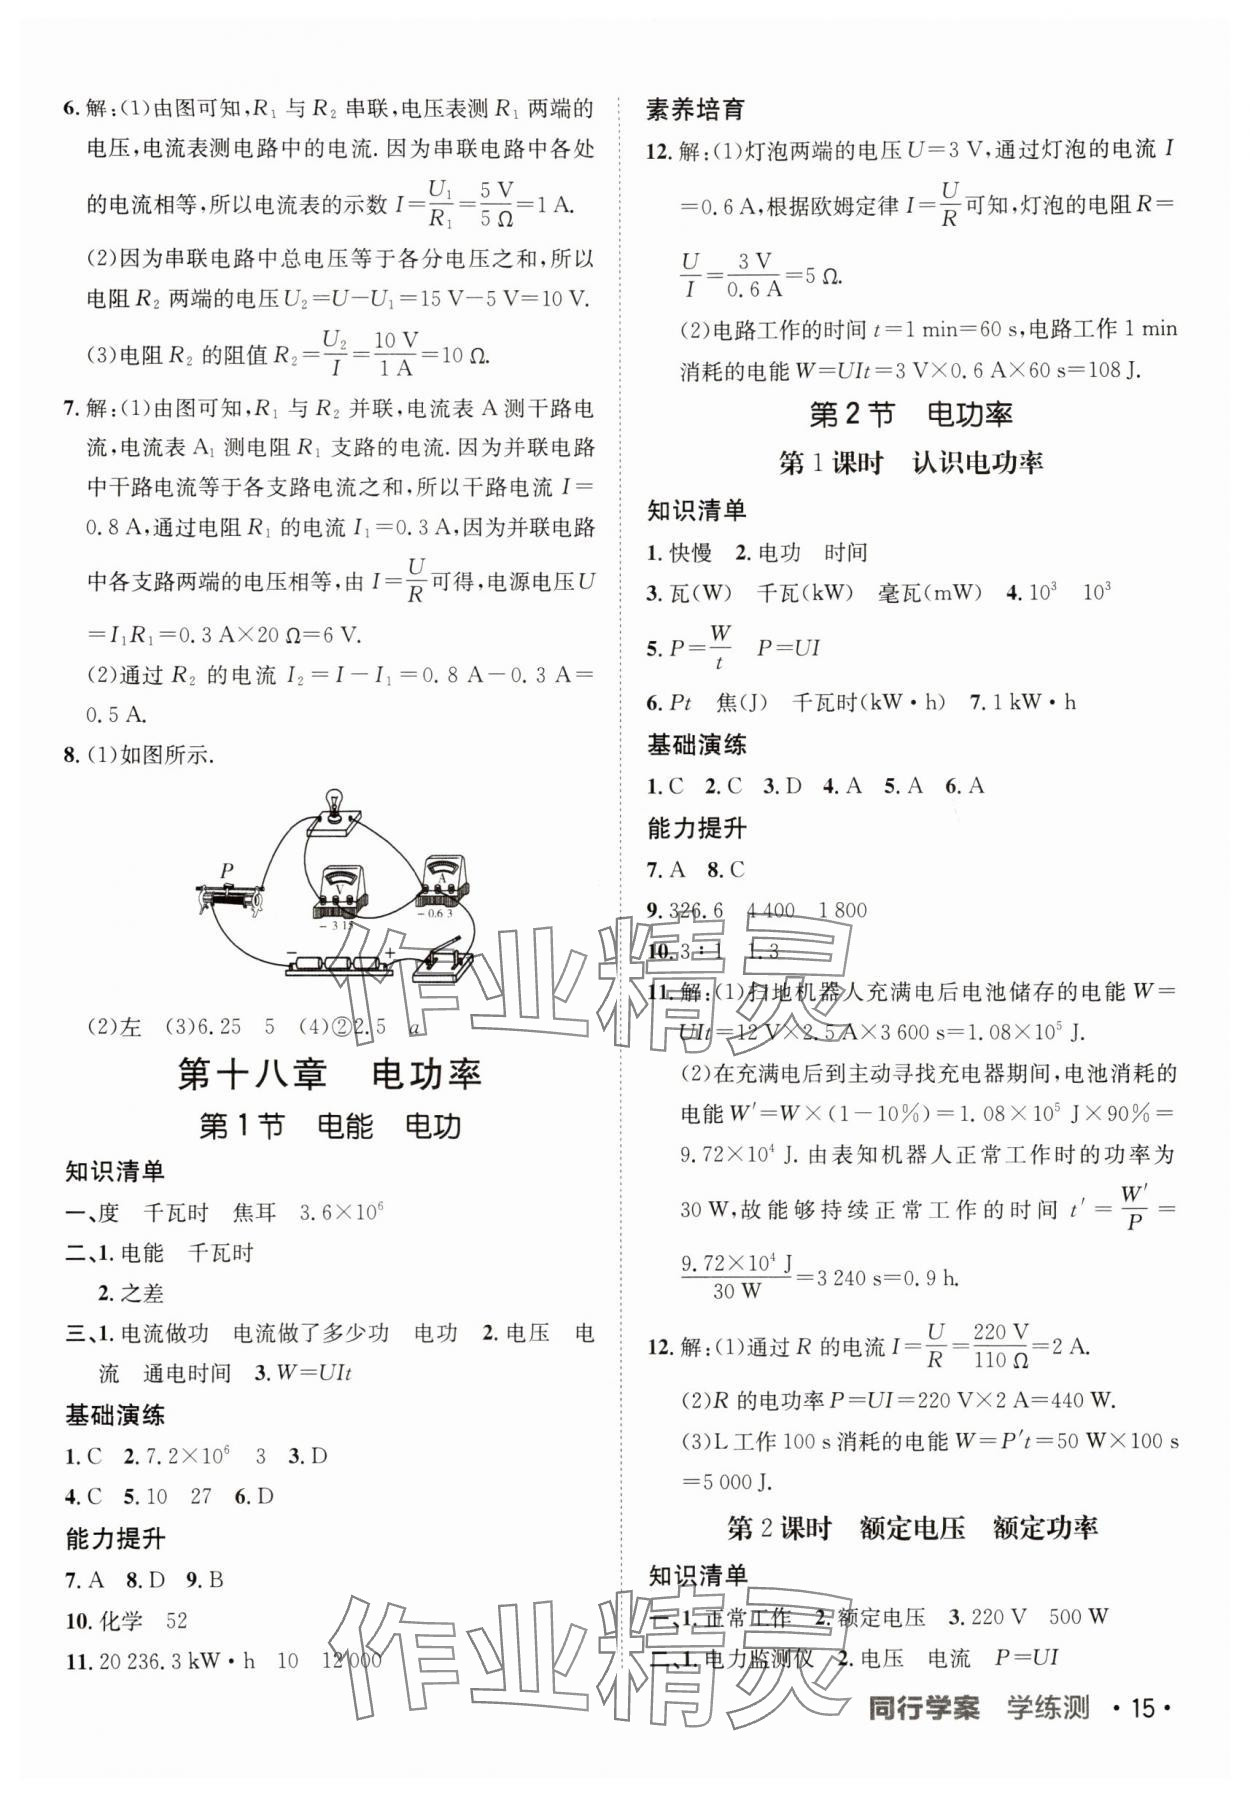 6. 解:(1)由图可知,R₁ 与 R₂ 串联,电压表测 R₁ 两端的
电压,电流表测电路中的电流. 因为串联电路中各处
的电流相等,所以电流表的示数 I=U₁/R₁=5 V/5 Ω=1 A.
(2)因为串联电路中总电压等于各分电压之和,所以
电阻 R₂ 两端的电压U₂=U−U₁=15 V−5 V=10 V.
(3)电阻 R₂ 的阻值 R₂=U₂/I=10 V/1 A=10 Ω.
7. 解:(1)由图可知,R₁ 与 R₂ 并联,电流表 A 测干路电
流,电流表 A₁ 测电阻 R₁ 支路的电流. 因为并联电路
中干路电流等于各支路电流之和,所以干路电流 I=
0.8 A,通过电阻 R₁ 的电流 I₁=0.3 A,因为并联电路
中各支路两端的电压相等,由 I=U/R可得,电源电压U
=I₁R₁=0.3 A×20 Ω=6 V.
(2)通过 R₂ 的电流 I₂=I−I₁=0.8 A−0.3 A=
0.5 A.
8. (1)如图所示.
P
V
− 3 15
A
− 0.6 3
− +
(2)左 (3)6.25 5 (4)②2.5 a
第十八章 电功率
第1节 电能 电功
知识清单
一、度 千瓦时 焦耳 3.6×10⁶
二、1. 电能 千瓦时
2. 之差
三、1. 电流做功 电流做了多少功 电功 2. 电压 电
流 通电时间 3. W=UIt
基础演练
1. C 2. 7.2×10⁶ 3 3. D
4. C 5. 10 27 6. D
能力提升
7. A 8. D 9. B
10. 化学 52
11. 20 236.3 kW·h 10 12 000
素养培育
12. 解:(1)灯泡两端的电压 U=3 V,通过灯泡的电流 I
=0.6 A,根据欧姆定律 I=U/R可知,灯泡的电阻 R=
U/I=3 V/0.6 A=5 Ω.
(2)电路工作的时间 t=1 min=60 s,电路工作 1 min
消耗的电能 W=UIt=3 V×0.6 A×60 s=108 J.
第2节 电功率
第1课时 认识电功率
知识清单
1. 快慢 2. 电功 时间
3. 瓦(W) 千瓦(kW) 毫瓦(mW) 4. 10³ 10³
5. P=W/t P=UI
6. Pt 焦(J) 千瓦时(kW·h) 7. 1 kW·h
基础演练
1. C 2. C 3. D 4. A 5. A 6. A
能力提升
7. A 8. C
9. 326.6 4 400 1 800
10. 3∶1 1.3
11. 解:(1)扫地机器人充满电后电池储存的电能 W=
UIt=12 V×2.5 A×3 600 s=1.08×10⁵ J.
(2)在充满电后到主动寻找充电器期间,电池消耗的
电能 W′=W×(1−10%)=1.08×10⁵ J×90%=
9.72×10⁴ J. 由表知机器人正常工作时的功率为
30 W,故能够持续正常工作的时间 t′=W′/P=
9.72×10⁴ J/30 W=3 240 s=0.9 h.
12. 解:(1)通过 R 的电流 I=U/R=220 V/110 Ω=2 A.
(2)R 的电功率 P=UI=220 V×2 A=440 W.
(3)L 工作 100 s 消耗的电能 W=P′t=50 W×100 s
=5 000 J.
第2课时 额定电压 额定功率
知识清单
一、1. 正常工作 2. 额定电压 3. 220 V 500 W
二、1. 电力监测仪 2. 电压 电流 P=UI
同行学案 学练测 ·15·
作业精灵
作业精灵